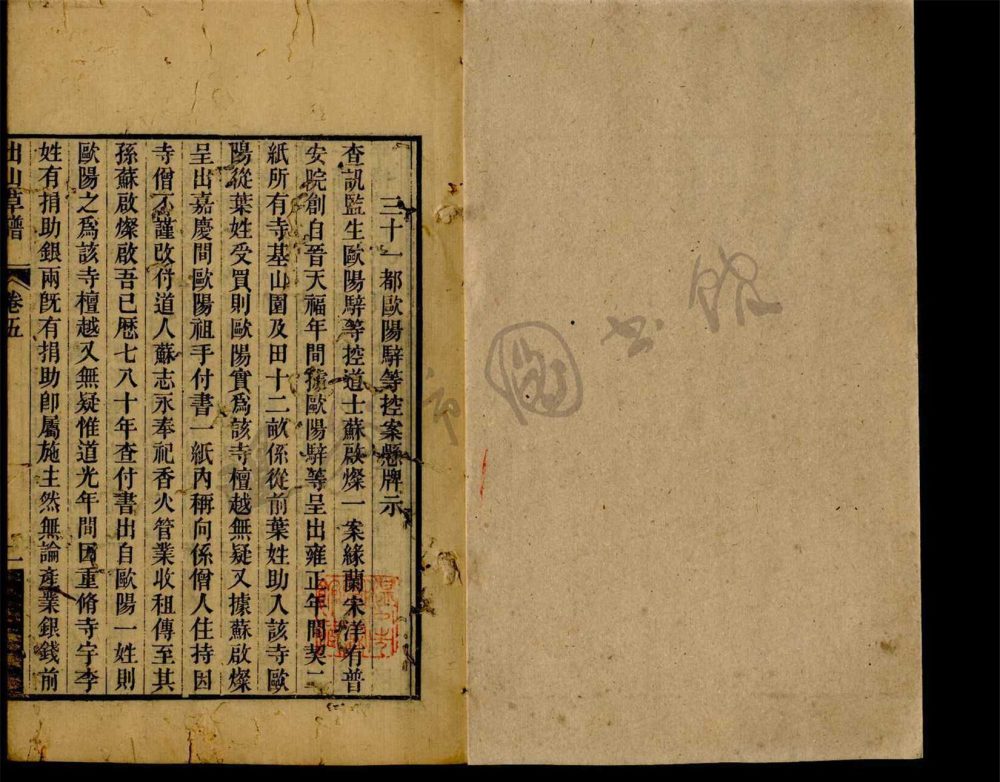 三十一都歐陽騂等控案懸牌示
查訊監生歐陽騂等控道士蘇啟燦一案緣蘭宋洋有普
安院創自晉天福年間據歐陽騂等呈出雍正年間契二
紙所有寺基山園及田十二畝係從前葉姓助入該寺歐
陽從葉姓受買則歐陽實為該寺檀越無疑又據蘇啟燦
呈出嘉慶間歐陽祖手付書一紙內稱向係僧人住持因
寺僧不謹改付道人蘇志永奉祀香火管業收租傳至其
孫蘇啟燦啟吾已歷七八十年查付書出自歐陽一姓則
歐陽之為該寺檀越又無疑惟道光年間因重脩寺宇李
姓有捐助銀兩既有捐助卽屬施主然無論產業銀錢前
出山草譜
卷五
一
圖書館